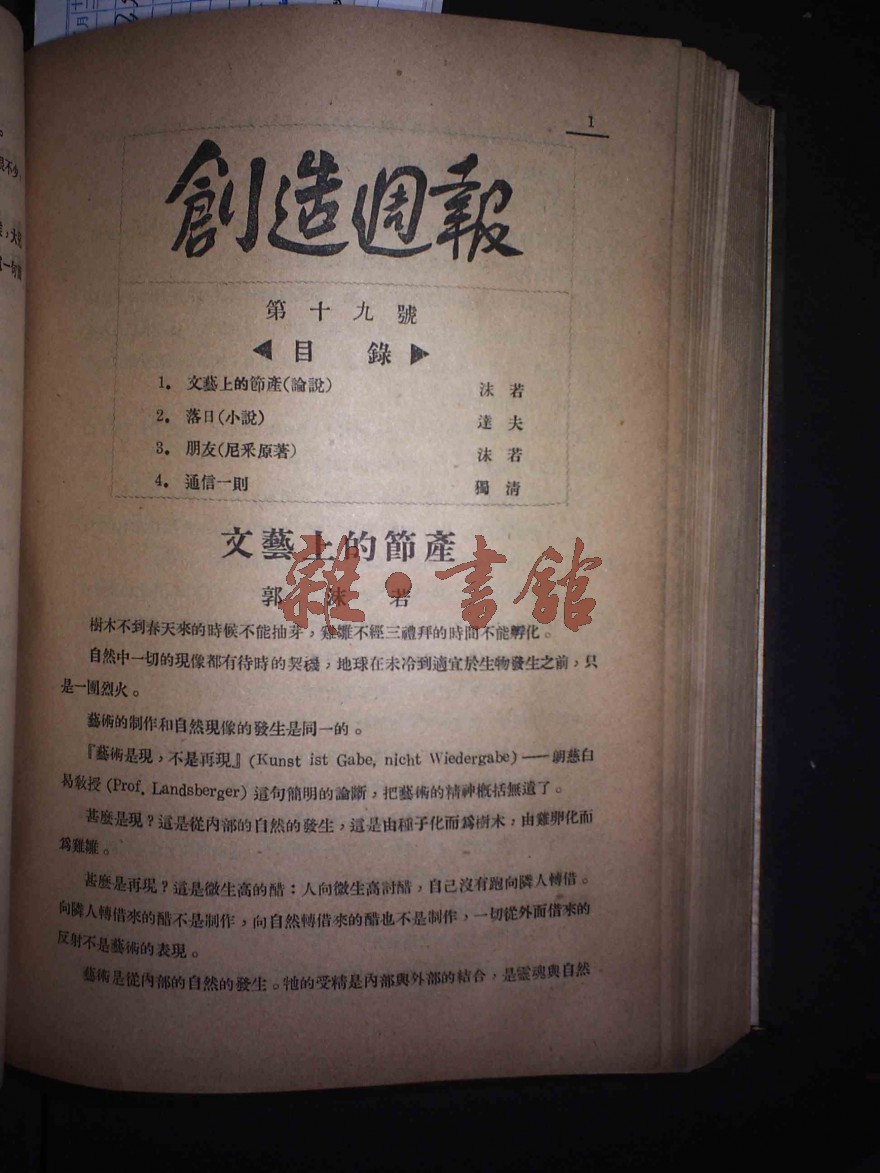 1
創造週報
第十九號
目錄
1. 文藝上的節產(論說) 沫若
2. 落日(小說) 達夫
3. 朋友(尼采原著) 沫若
4. 通信一則 獨清
文藝上的節產
郭沫若
雜·書館
樹木不到春天來的時候不能抽芽，雞雛不經三禮拜的時間不能孵化。
自然中一切的現像都有待時的契機，地球在未冷到適宜於生物發生之前，只
是一團烈火。
藝術的制作和自然現像的發生是同一的。
『藝術是現，不是再現』(Kunst ist Gabe, nicht Wiedergabe)——朗慈白
曷教授 (Prof. Landsberger) 這句簡明的論斷，把藝術的精神概括無遺了。
甚麼是現？這是從內部的自然的發生，這是由種子化而爲樹木，由雞卵化而
爲雞雛。
甚麼是再現？這是微生高的醋：人向微生高討醋，自己沒有跑向隣人轉借。
向隣人轉借來的醋不是制作，向自然轉借來的醋也不是制作，一切從外面借來的
反射不是藝術的表現。
藝術是從內部的自然的發生。牠的受精是內部與外部的結合，是靈魂與自然